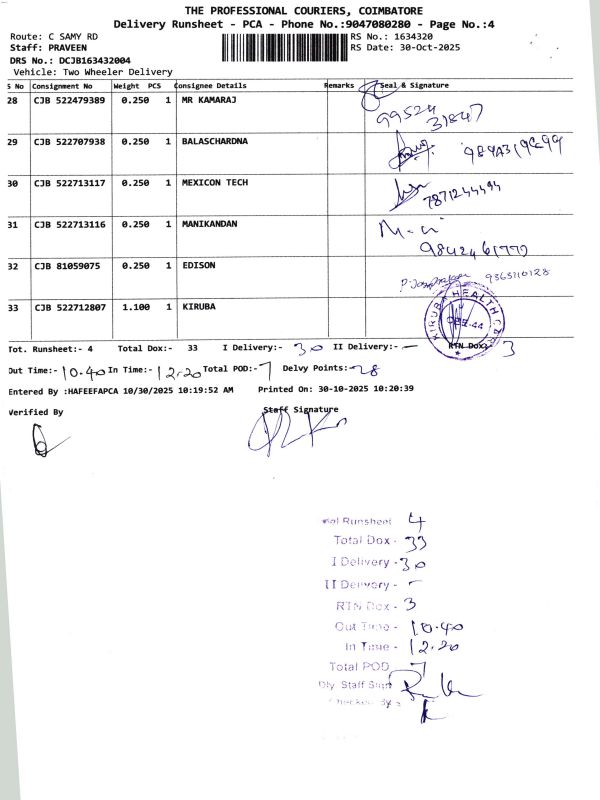 THE PROFESSIONAL COURIERS, COIMBATORE
Delivery Runsheet - PCA - Phone No.:9047080280 - Page No.:4
Route: C SAMY RD RS No.: 1634320
Staff: PRAVEEN RS Date: 30-Oct-2025
DRS No.: DCJB163432004
Vehicle: Two Wheeler Delivery
S No Consignment No Weight PCS Consignee Details Remarks Seal & Signature
28 CJB 522479389 0.250 1 MR KAMARAJ 99524
31847
29 CJB 522707938 0.250 1 BALASCHARDNA
30 CJB 522713117 0.250 1 MEXICON TECH 7871244494
31 CJB 522713116 0.250 1 MANIKANDAN
9842461777
32 CJB 81059075 0.250 1 EDISON 9365110128
33 CJB 522712807 1.100 1 KIRUBA KIRUBA HEALTH CARE
Tot. Runsheet:- 4 Total Dox:- 33 I Delivery:- 30 II Delivery:- — RTN Dox:- 3
Out Time:- 10.40 In Time:- 12.20 Total POD:- 7 Delvy Points:- 28
Entered By :HAFEEFAPCA 10/30/2025 10:19:52 AM Printed On: 30-10-2025 10:20:39
Verified By Staff Signature
Runsheet 4
Total Dox - 33
I Delivery - 30
II Delivery - –
RTN Dox - 3
Out Time - 10.40
In Time - 12.20
Total POD 7
Dly Staff Sign
Checked By